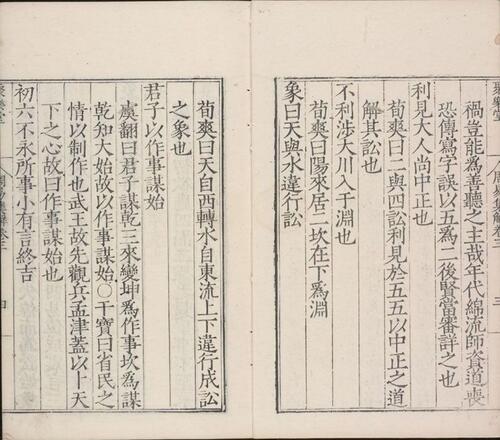 禍豈能爲善聽之主哉年代綿流師資道喪
恐傳寫字誤以五爲二後賢當審詳之也
利見大人尚中正也
荀爽曰二與四訟利見於五五以中正之道
解其訟也
不利涉大川入于淵也
荀爽曰陽來居二坎在下爲淵
象曰天與水違行訟
荀爽曰天自西轉水自東流上下違行成訟
之象也
君子以作事謀始
虞翻曰君子謀乾三來變坤爲作事坎爲謀
乾知大始故以作事謀始○干寶曰省民之
情以制作也武王故先觀兵孟津蓋以卜天
下之心故曰作事謀始也
初六不永所事小有言終吉